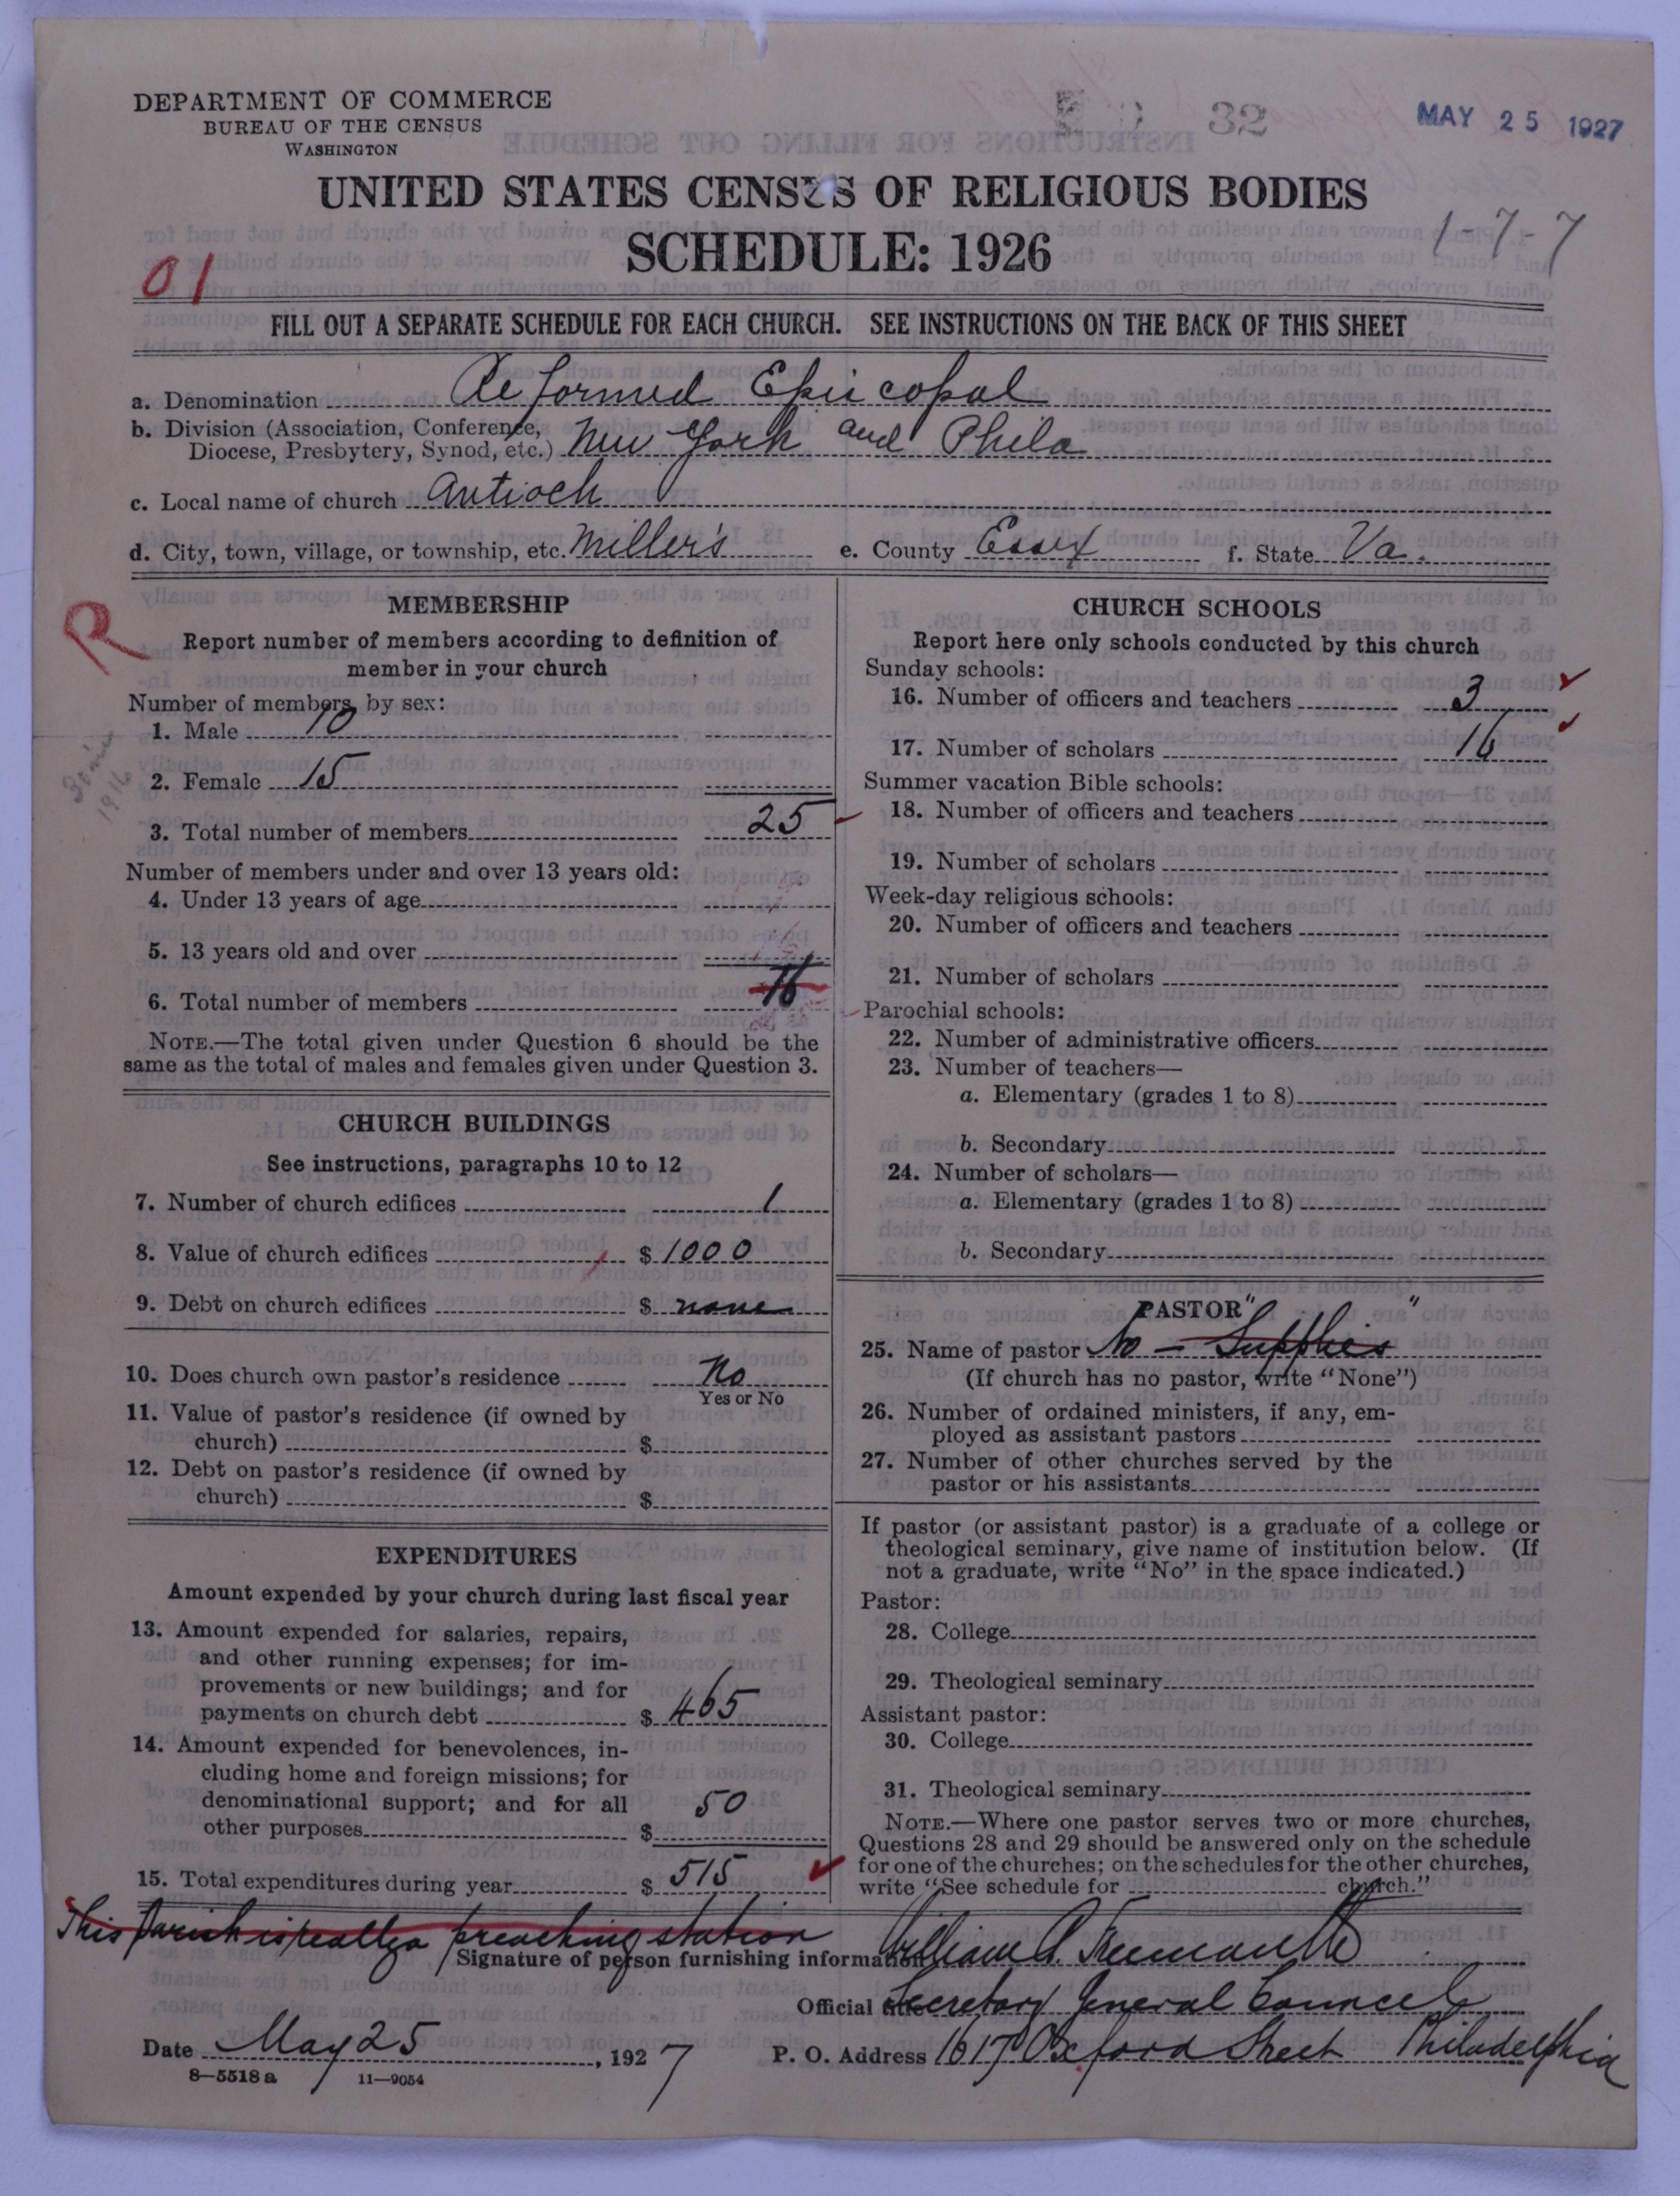 DEPARTMENT OF COMMERCE
BUREAU OF THE CENSUS
WASHINGTON
32
MAY 25 1927
UNITED STATES CENSUS OF RELIGIOUS BODIES
SCHEDULE: 1926
1-7-7
01
FILL OUT A SEPARATE SCHEDULE FOR EACH CHURCH. SEE INSTRUCTIONS ON THE BACK OF THIS SHEET
a. Denomination Reformed Episcopal
b. Division (Association, Conference,
Diocese, Presbytery, Synod, etc.) New York and Phila
c. Local name of church Antioch
d. City, town, village, or township, etc. Miller's e. County Essex f. State Va.
R
MEMBERSHIP
Report number of members according to definition of
member in your church
Number of members by sex:
1. Male 10
2. Female 15
1916
3. Total number of members 25
Number of members under and over 13 years old:
4. Under 13 years of age
5. 13 years old and over
6. Total number of members 16
NOTE.—The total given under Question 6 should be the
same as the total of males and females given under Question 3.
CHURCH BUILDINGS
See instructions, paragraphs 10 to 12
7. Number of church edifices 1
8. Value of church edifices $ 1000
9. Debt on church edifices $ none
10. Does church own pastor's residence No
Yes or No
11. Value of pastor's residence (if owned by
church) $
12. Debt on pastor's residence (if owned by
church) $
EXPENDITURES
Amount expended by your church during last fiscal year
13. Amount expended for salaries, repairs,
and other running expenses; for im-
provements or new buildings; and for
payments on church debt $ 465
14. Amount expended for benevolences, in-
cluding home and foreign missions; for
denominational support; and for all
other purposes $ 50
15. Total expenditures during year $ 515
CHURCH SCHOOLS
Report here only schools conducted by this church
Sunday schools:
16. Number of officers and teachers 3
17. Number of scholars 16
Summer vacation Bible schools:
18. Number of officers and teachers
19. Number of scholars
Week-day religious schools:
20. Number of officers and teachers
21. Number of scholars
Parochial schools:
22. Number of administrative officers
23. Number of teachers—
a. Elementary (grades 1 to 8)
b. Secondary
24. Number of scholars—
a. Elementary (grades 1 to 8)
b. Secondary
PASTOR
25. Name of pastor No - "Supplies"
(If church has no pastor, write "None")
26. Number of ordained ministers, if any, em-
ployed as assistant pastors
27. Number of other churches served by the
pastor or his assistants
If pastor (or assistant pastor) is a graduate of a college or
theological seminary, give name of institution below. (If
not a graduate, write "No" in the space indicated.)
Pastor:
28. College
29. Theological seminary
Assistant pastor:
30. College
31. Theological seminary
NOTE.—Where one pastor serves two or more churches,
Questions 28 and 29 should be answered only on the schedule
for one of the churches; on the schedules for the other churches,
write "See schedule for church."
This parish is really a preaching station
Signature of person furnishing information William A. Freemantle
Official title Secretary General Council
Date May 25, 1927 P. O. Address 1617 Oxford Street Philadelphia
8—5518 a 11—9054